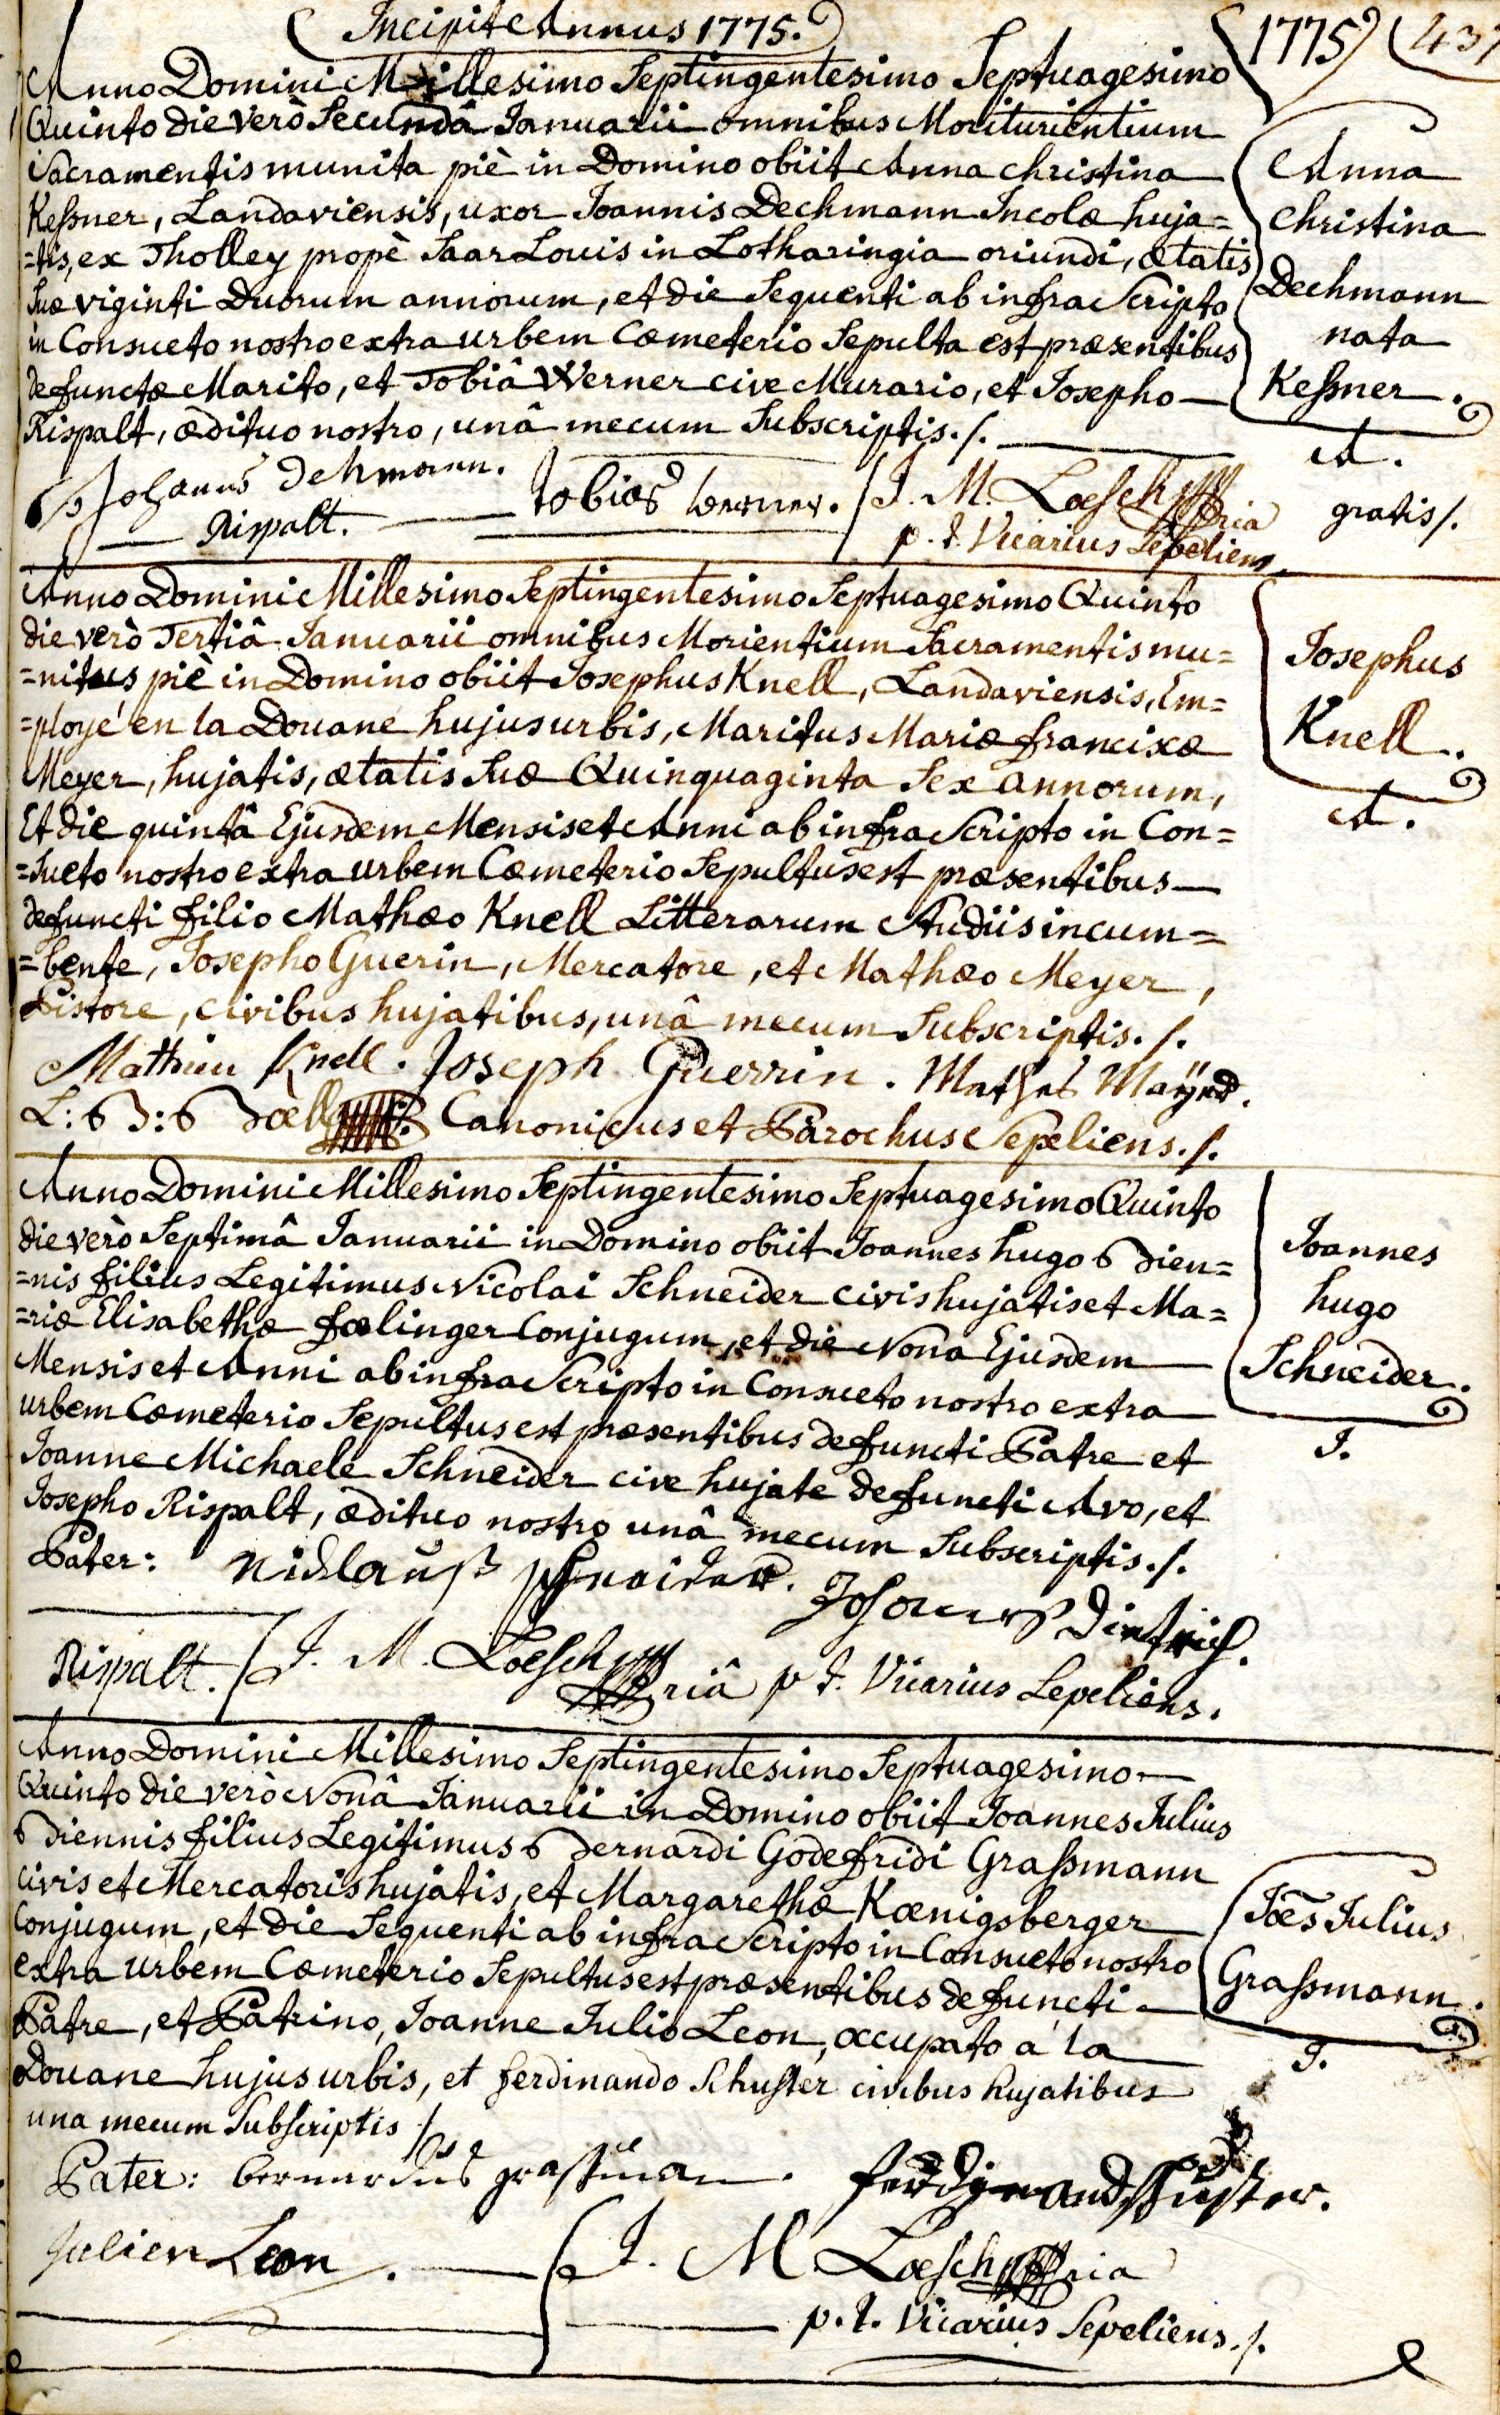 Incipit Annus 1775.
1775
Anno Domini Millesimo Septingentesimo Septuagesimo
Quinto die verò Secundâ Ianuarii omnibus Moriturientium
Sacramentis munita piè in Domino obiit Anna Christina
Keßner, Landaviensis, uxor Joannis Dechmann Incolæ huja=
=tis, ex Tholley propè Saar Louis in Lotharingia oriundi, ætatis
Suæ viginti Duorum annorum, et die Sequenti ab infra Scripto
in Consueto nostro extra urbem Cœmeterio Sepulta est præsentibus
defunctæ Marito, et Tobiâ Werner cive Murario, et Josepho
Rispalt, ædituo nostro, unâ mecum Subscriptis./.
Anna
Christina
Dechmann
nata
Keßner.
A.
gratis/.
Johanns Dehmann.
Rispalt.
Tobias Werner.
J. M. Loesch
p. t. Vicarius Sepeliens.
Anno Domini Millesimo Septingentesimo Septuagesimo Quinto
die verò Tertiâ Ianuarii omnibus Morientium Sacramentis mu=
=nitus piè in Domino obiit Josephus Knell, Landaviensis, Em=
=ployé en la Douane hujus urbis, Maritus Mariæ Franciscæ
Meyer, hujatis, ætatis Suæ Quinquaginta Sex annorum,
Et die quintâ Ejusdem Mensis et Anni ab infra Scripto in Con=
=Sueto nostro extra urbem Cœmeterio Sepultus est præsentibus
defuncti filio Mathæo Knell Litterarum Studiis incum=
=bente, Josepho Guerin, Mercatore, et Mathæo Meyer,
Pistore, civibus hujatibus, unâ mecum Subscriptis./.
Josephus
Knell.
A.
Mathieu Knell. Joseph Guerrin. Mathes Mayer.
Canonicus et Parochus Sepeliens./.
Anno Domini Millesimo Septingentesimo Septuagesimo Quinto
die verò Septimâ Ianuarii in Domino obiit Joannes Hugo Bien=
=nis filius Legitimus Nicolai Schneider civis hujatis et Ma=
=riæ Elisabethæ Fœlinger Conjugum, et die Nona Ejusdem
Mensis et Anni ab infra Scripto in Consueto nostro extra
urbem Cœmeterio Sepultus est præsentibus defuncti Patre et
Joanne Michaele Schneider cive hujate defuncti Avo, et
Josepho Rispalt, ædituo nostro unâ mecum Subscriptis./.
Joannes
Hugo
Schneider.
J.
Pater: Nicklauß Schneider. Johannes Dietrich.
Rispalt. J. M. Loesch p t. Vicarius Sepeliens.
Anno Domini Millesimo Septingentesimo Septuagesimo
Quinto die verò Nonâ Ianuarii in Domino obiit Joannes Julius
Biennis filius Legitimus Bernardi Godefridi Graßmann
civis et Mercatoris hujatis, et Margarethæ Kœnigsberger
Conjugum, et die Sequenti ab infra Scripto in Consueto nostro
extra urbem Cœmeterio Sepultus est præsentibus defuncti
Patre, et Patrino, Joanne Julio Leon, occupato a la
Douane hujus urbis, et ferdinando Schuster civibus hujatibus
una mecum Subscriptis /.
Jões Julius
Graßmann.
J.
Pater: bernardus graßman. ferdinand Schuster.
Julien Leon. J. M. Loesch
p. t. Vicarius Sepeliens./.